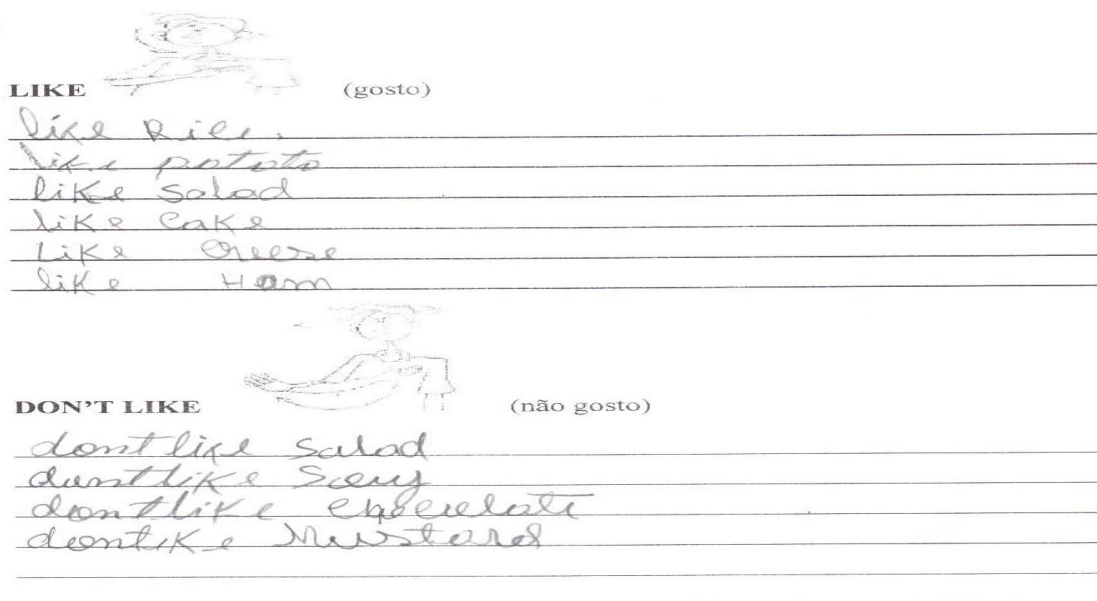 LIKE (gosto)
like Rice.
like potato
like Salad
like Cake
Like Cheese
like Ham
DON'T LIKE (não gosto)
dont like Salad
dont like Soy
dont like Chocolate
dontike Mustard